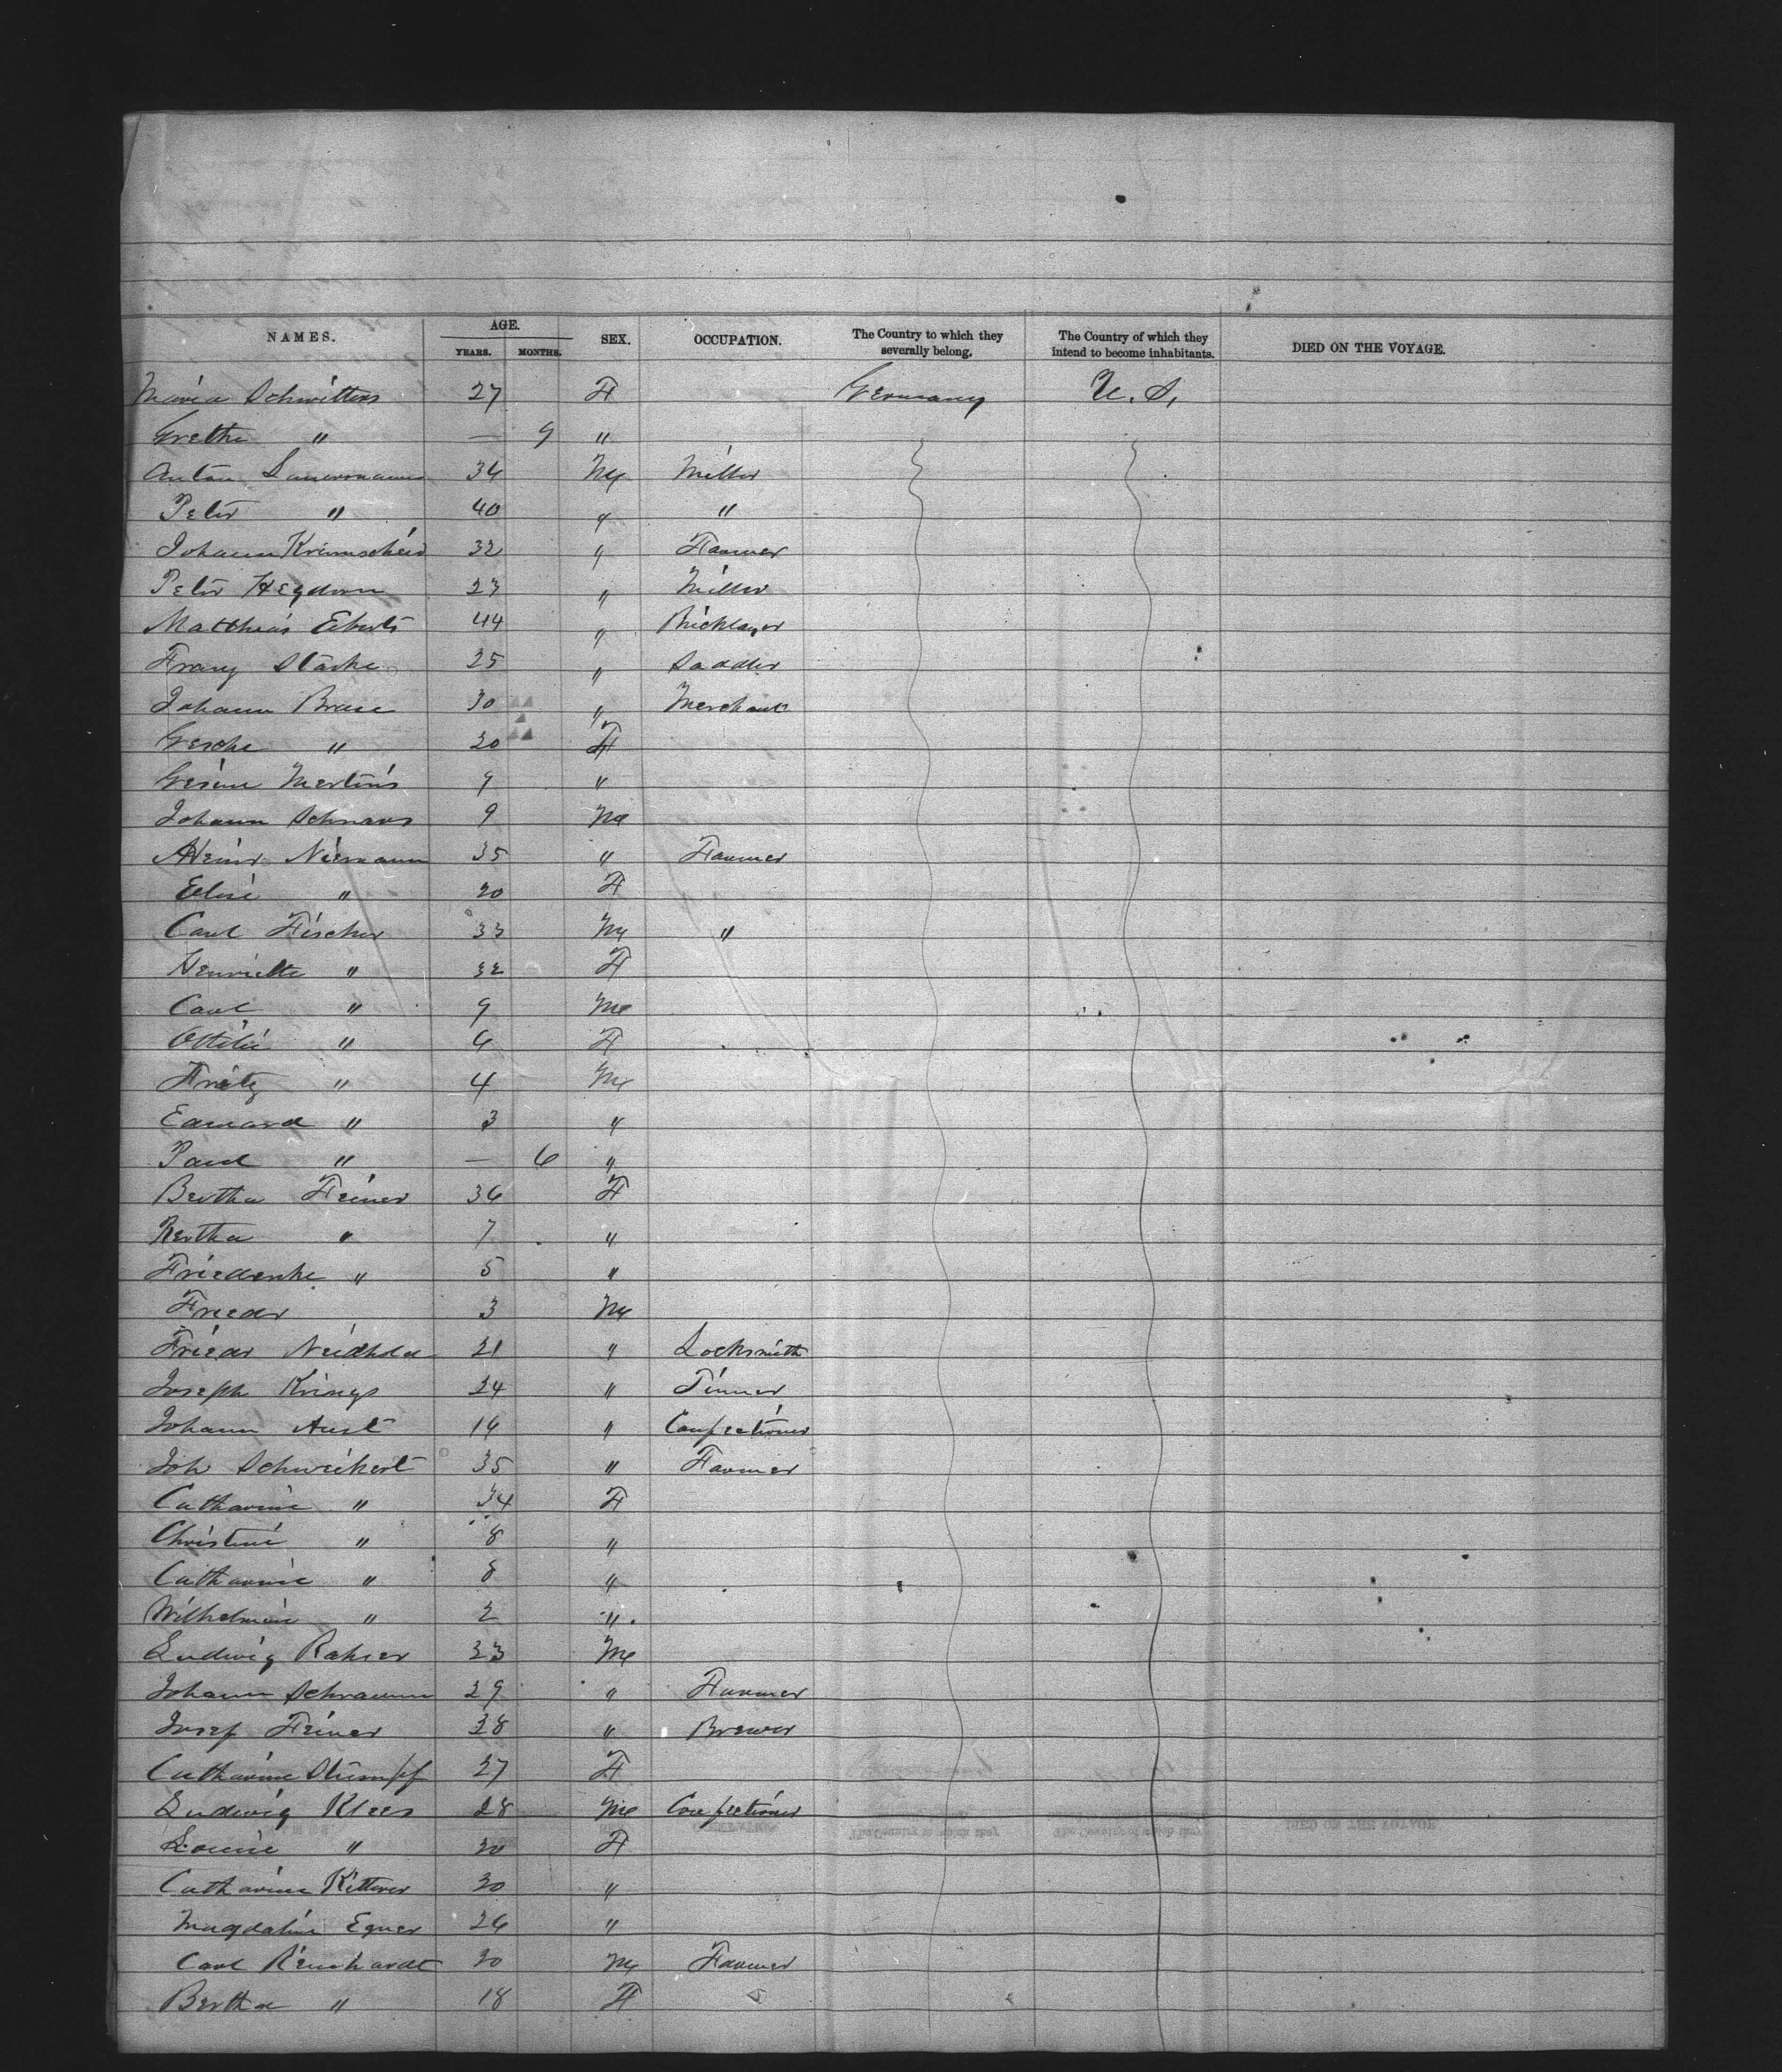 NAMES. AGE. SEX. OCCUPATION. The Country to which they severally belong. The Country of which they intend to become inhabitants. DIED ON THE VOYAGE.
YEARS. MONTHS.
Maria Schwitters 27 F Germany U. S.
Grethe " — 9 "
Anton 34 M Miller
Peter " 40 " "
Johann Krimscheid 32 " Farmer
Peter Hegdorn 23 " Miller
Matthias Eiberts 44 " Bricklayer
Franz Starke 25 " Saddler
Johann Brase 30 " Merchant
Gesche " 20 F
Gesine Mertins 9 "
Johann Schnaars 9 M
Heinr Niemann 35 " Farmer
Elise " 20 F
Carl Fischer 33 M "
Henriette " 32 F
Carl " 9 M
Ottilie " 6 F
Fritz " 4 M
Eduard " 3 "
Paul " — 6 "
Bertha Feiner 36 F
Bertha " 7 "
Friederike " 5 "
Friedr 3 M
Friedr 21 " Locksmith
Joseph Krings 24 " Tinner
Johann Aust 16 " Confectioner
Joh Schweikert 35 " Farmer
Catharine " 34 F
Christine " 8 "
Catharine " 8 "
Wilhelmine " 2 "
Ludwig Rahser 23 M
Johann Schramm 29 " Farmer
Josef Feiner 38 " Brewer
Catharine Stumpf 27 F
Ludwig Klees 28 M Confectioner
Louise " 30 F
Catharine Ketterer 30 "
Magdaline Egner 26 "
Carl Reinhardt 30 M Farmer
Bertha " 18 F